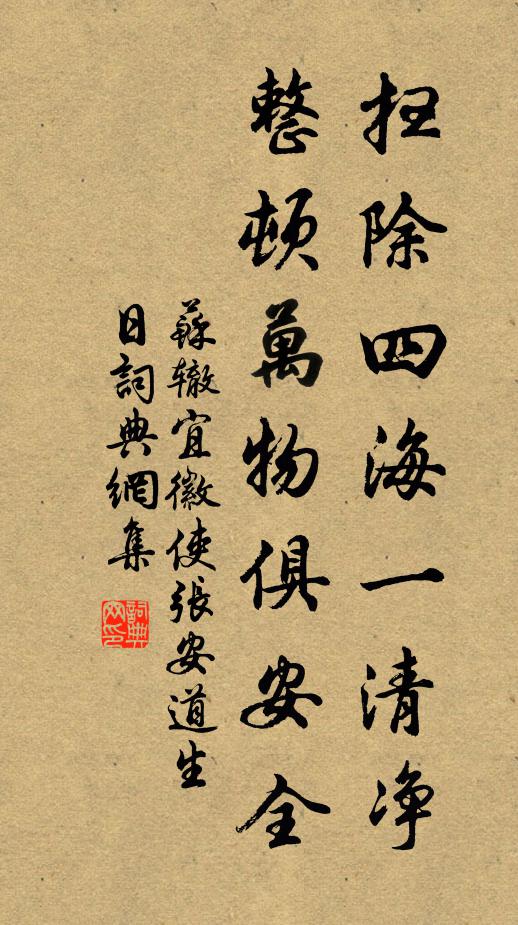 扫除四海一清净
整顿萬物俱安全
蘇辙宜徽使張安道生
日詞典網集
詞典
网印